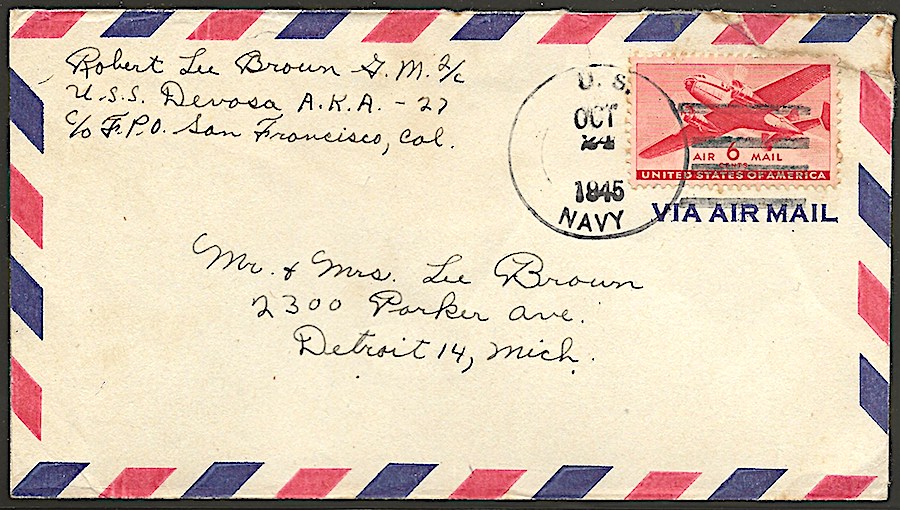 Robert Lee Brown G.M. 2/c
U.S.S. Devosa A.K.A. - 27
c/o F.P.O. San Francisco, Cal.
U. S.
OCT
24
1945
NAVY
AIR 6 MAIL
CENTS
UNITED STATES OF AMERICA
VIA AIR MAIL
Mr. & Mrs. Lee Brown
2300 Parker Ave.
Detroit 14, Mich.